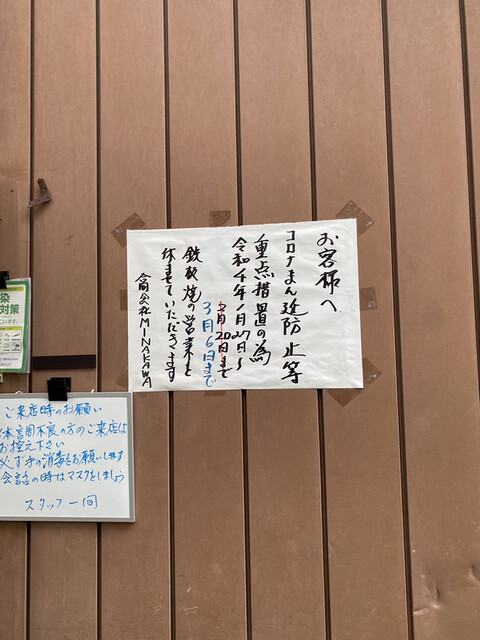 お客様へ
コロナまん延防止等
重点措置の為
令和4年1月27日〜
2月20日まで
3月6日まで
鉄板焼の営業を
休ませていただきます
合同会社MINAKAWA
染
対策
ています。
ご来店時のお願い
体調不良の方のご来店は
お控え下さい
必ず手の消毒をお願いします
会話の時はマスクをしましょう
スタッフ一同